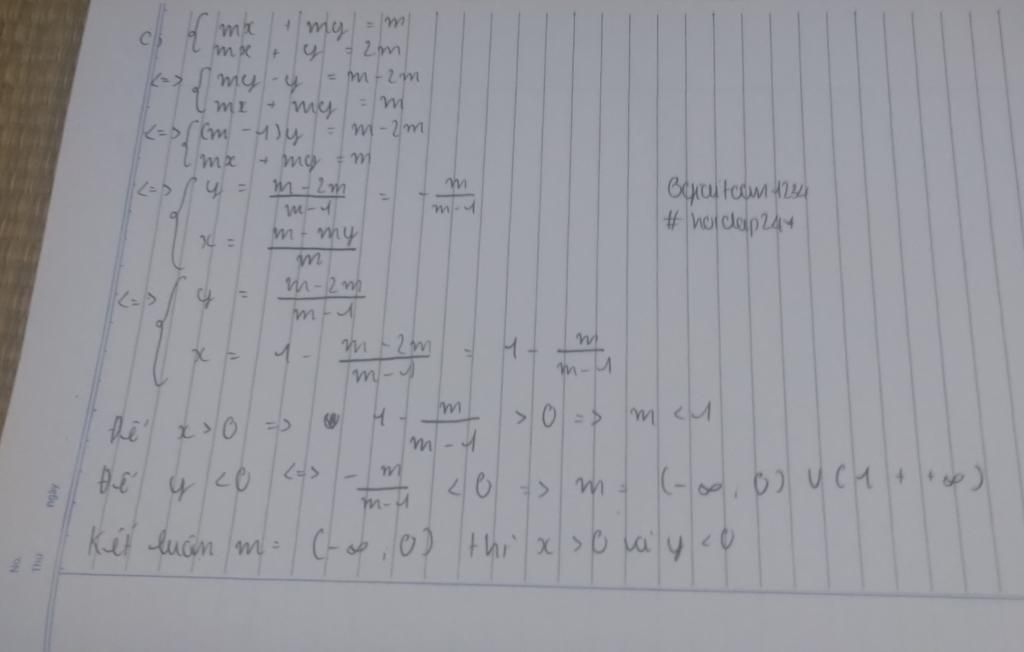 c, { mx + my = m
mx + y = 2m
<=> { my - y = m - 2m
mx + my = m
<=> { (m - 1)y = m - 2m
mx + my = m
<=> { y = (m - 2m)/(m - 1) = - m/(m - 1)
x = (m - my)/m
# hoidap247
<=> { y = (m - 2m)/(m - 1)
x = 1 - (m - 2m)/(m - 1) = 1 - m/(m - 1)
Để x > 0 => 1 - m/(m - 1) > 0 => m < 1
Để y < 0 <=> - m/(m - 1) < 0 => m = (-∞, 0) ∪ (1 + +∞)
Kết luận m = (-∞, 0) thì x > 0 và y < 0
No.
Thứ
ngày